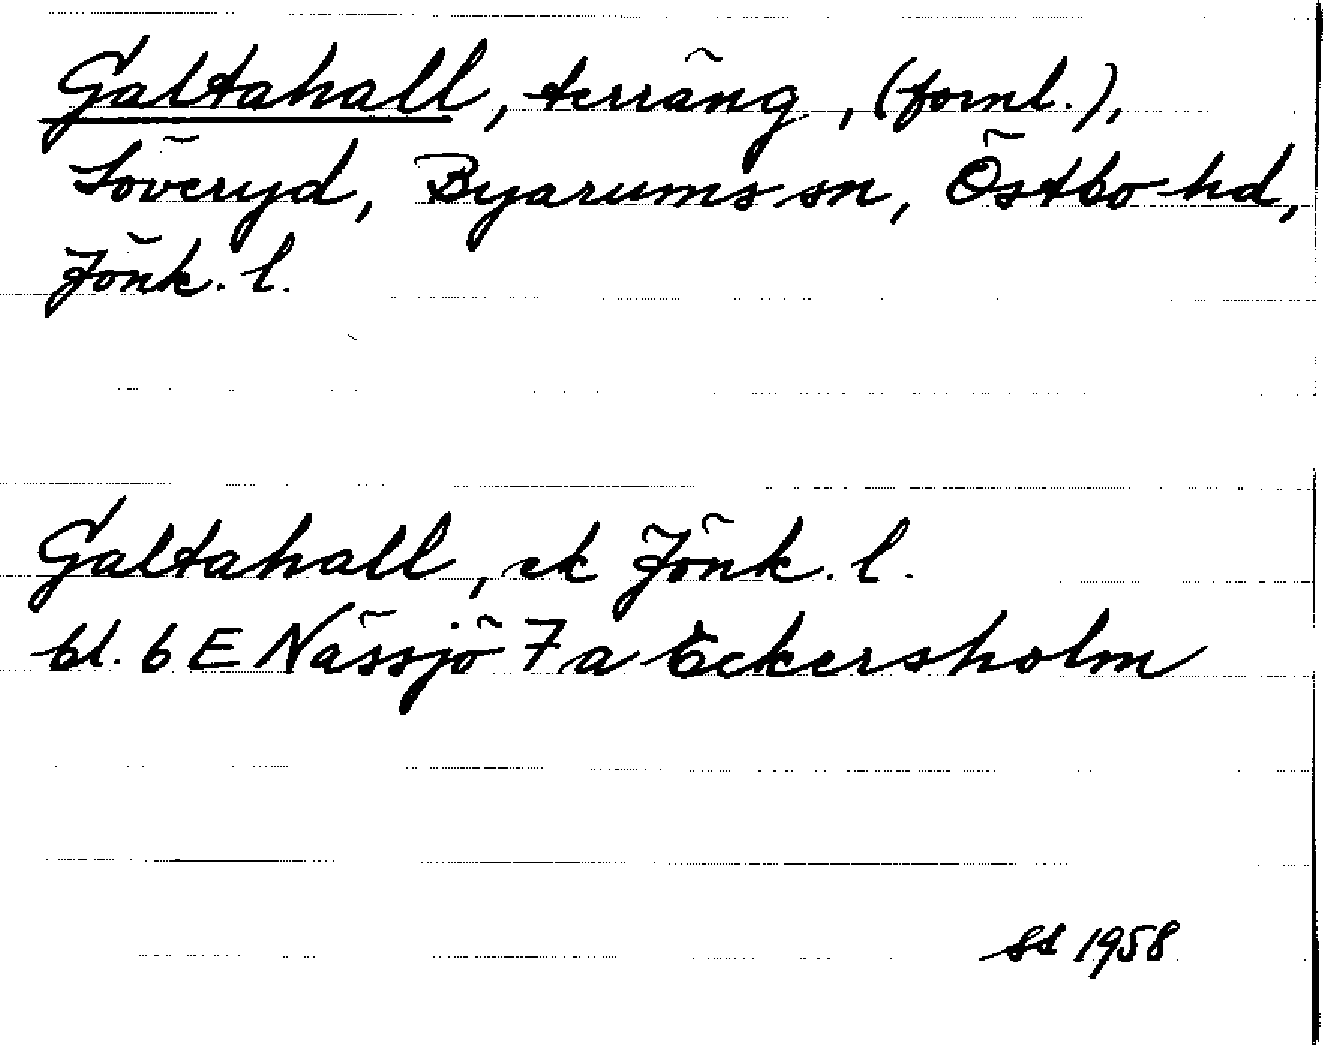 Galtahall, terräng, (fornl.),
Söveryd, Byarums sn, Östbo hd,
Jönk. l.
Galtahall, ek Jönk. l.
bl. 6 E Nässjö 7 a Eckersholm
SS 1958